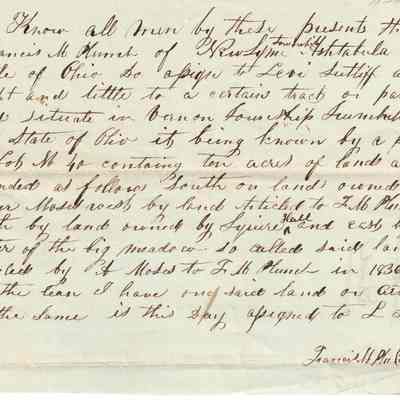 Know all men by these presents th
ances M Plumb of New Lyme Township Ashtabula
le of Ohio do assign to Levi Sutliff a
ht and tittle to a certain tract or pa
d situate in Vernon Township Trumbul
State of Ohio it being known by a p
Lot N 40 containg ten acres of land a
nded as follows South on land owned
er Moses west by land Articled to F. M Plu
th by land owned by Squire Hall and east b
ter of the big meadow so called said lan
cled by A Moses to F. M. Plumb in 1836
the lean I have on said land or art
the same is this day assigned to L S
Francis M Plu